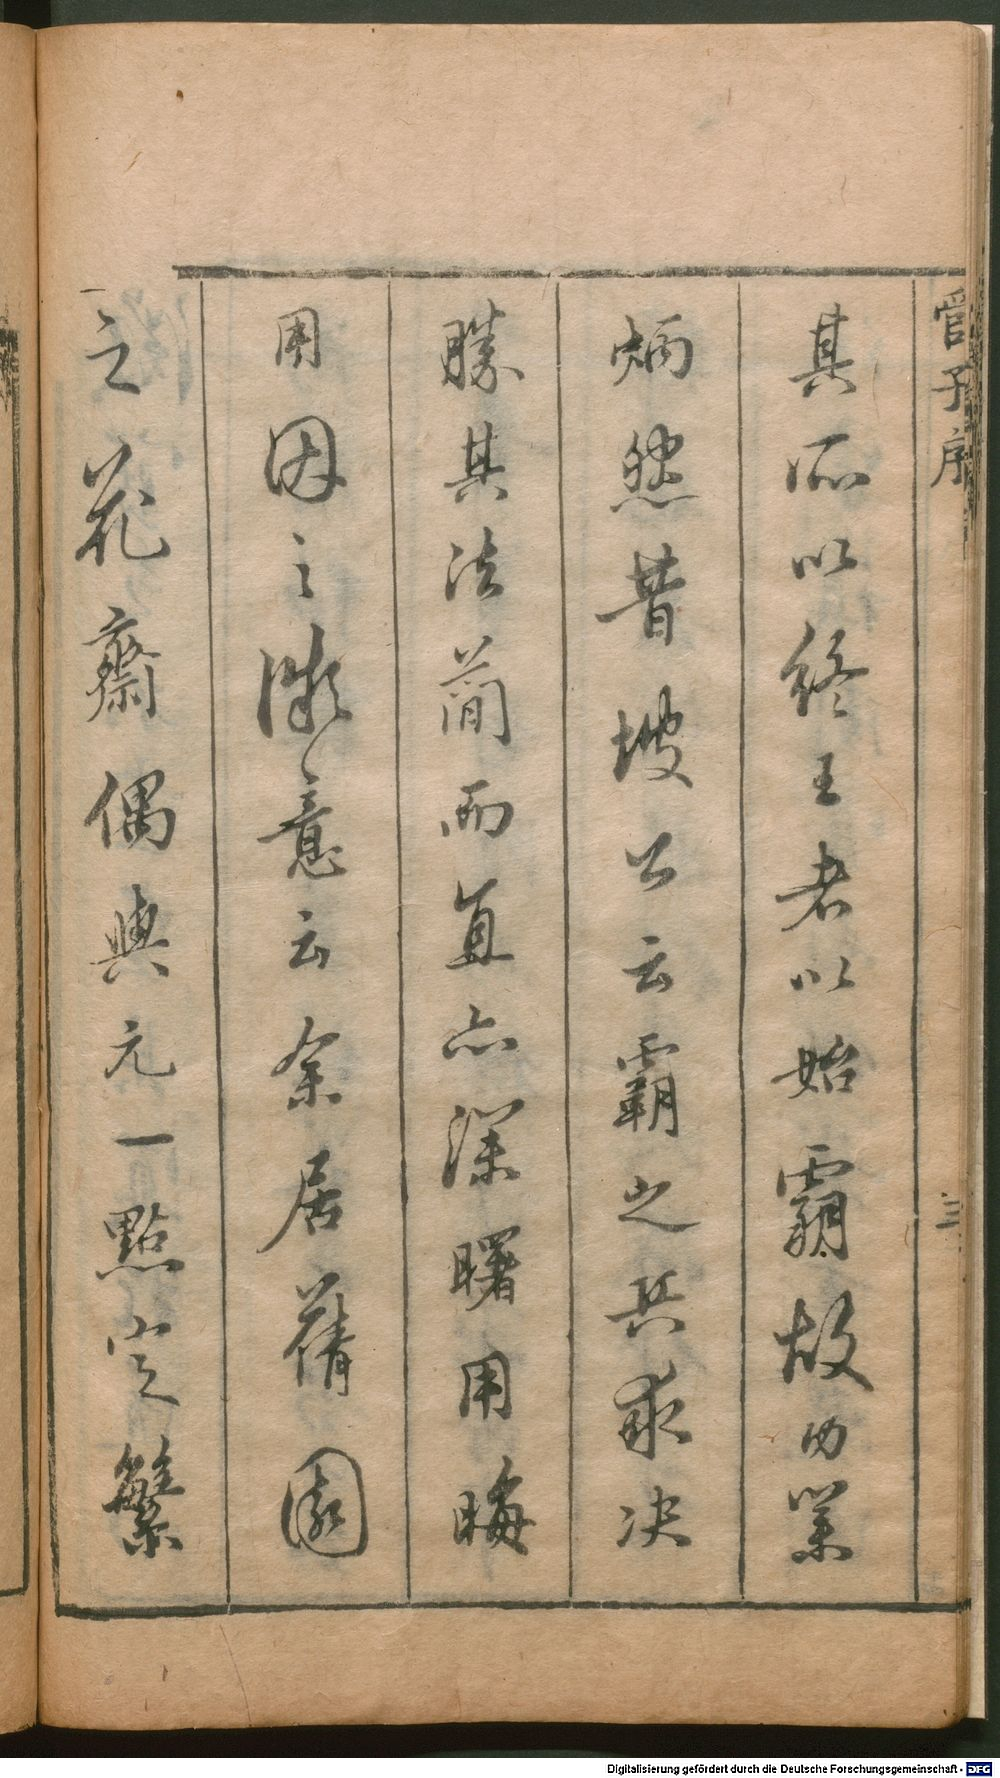 管子序
三
其所以終王者以始霸故功業
炳然昔坡公云霸之兵求決
勝其法簡而直亦深曙用晦
用因之微意云余居蒨園
之花齋偶與元一點定繁
Digitalisierung gefördert durch die Deutsche Forschungsgemeinschaft - DFG